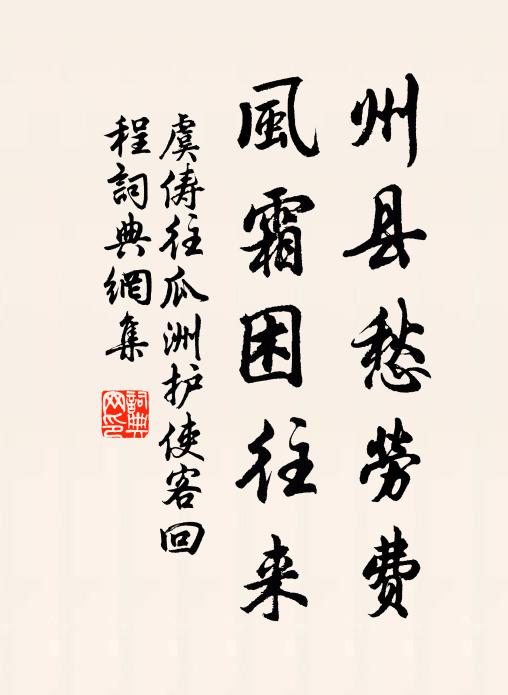 州县愁勞费
風霜困往来
虞俦往瓜洲护使客回
程詞典網集
詞典网印